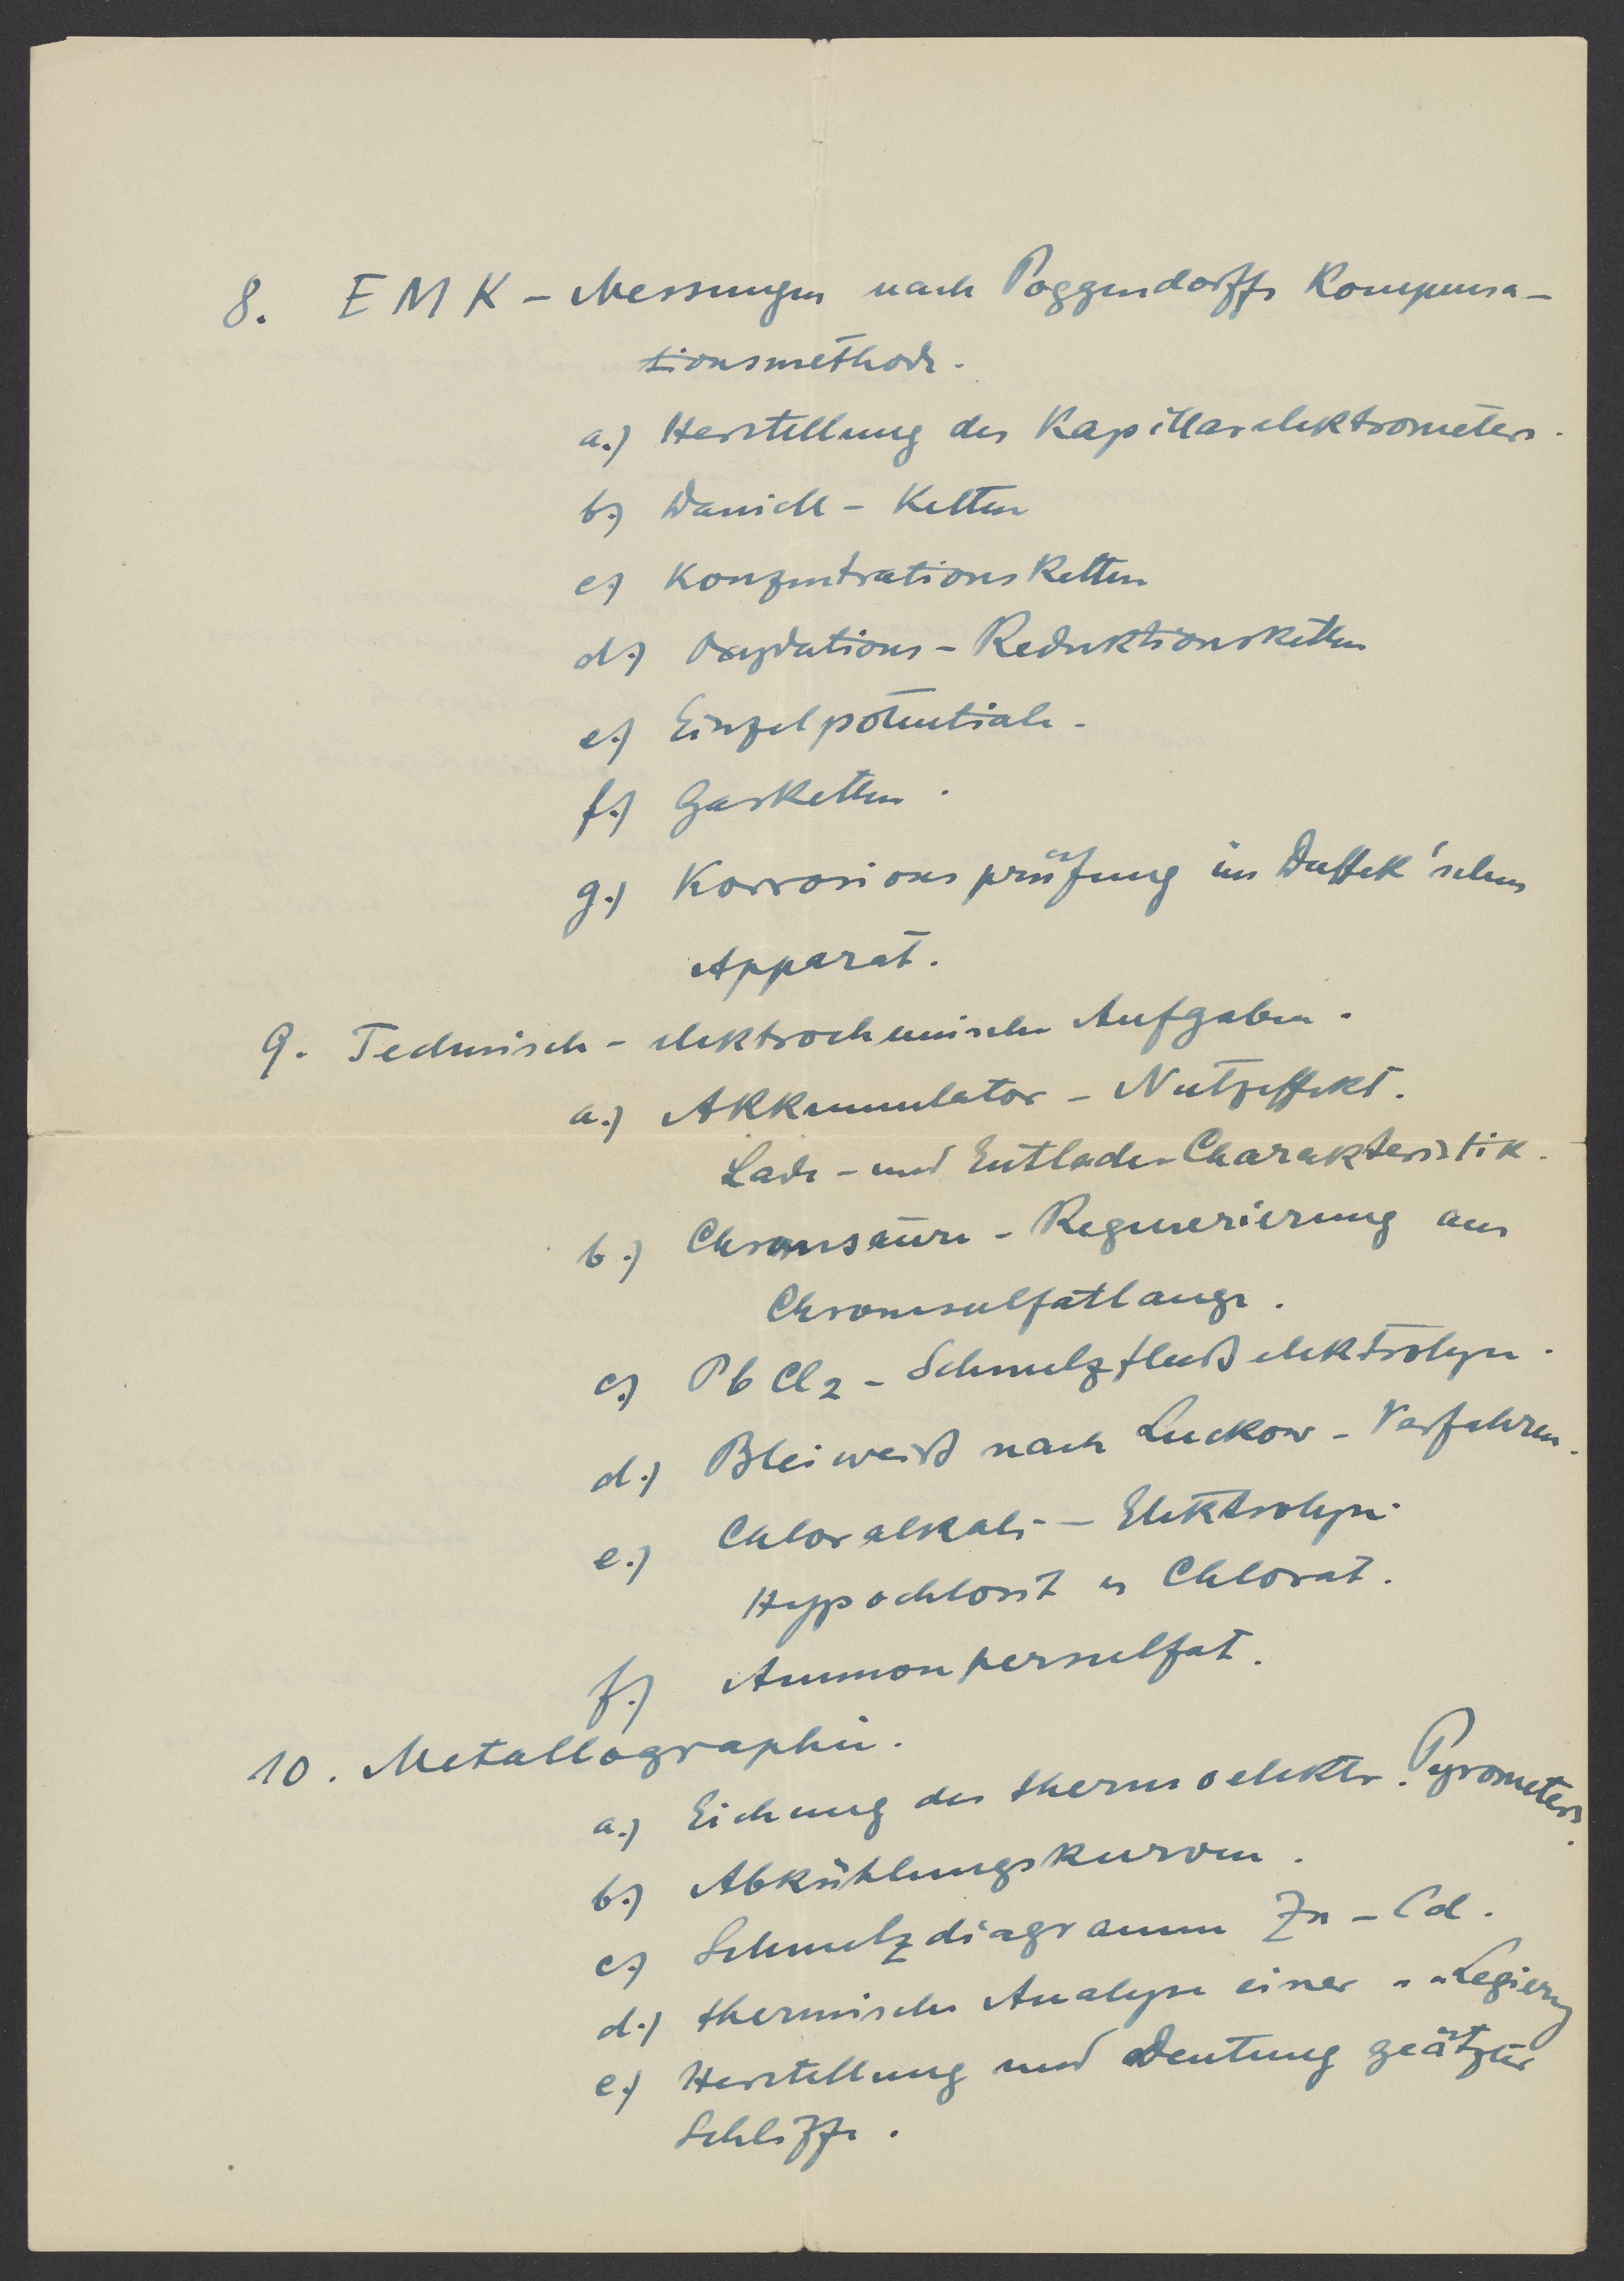 8. EMK - Messungen nach Poggendorffs Kompensa-
tionsmethode.
a.) Herstellung des Kapillarelektrometers.
b.) Daniell - Ketten
c.) Konzentrationsketten
d.) Oxydations - Reduktionsketten
e.) Einzelpotentiale.
f.) Gasketten.
g.) Korrosionsprüfung im Duffek'schen
Apparat.
9. Technisch - elektrochemische Aufgaben.
a.) Akkumulator - Nutzeffekt.
Lade - und Entlade-Charakteristik.
b.) Chromsäure - Regenerierung aus
Chromsulfatlauge.
c.) PbCl2 - Schmelzflußelektrolyse.
d.) Bleiweiß nach Luckow - Verfahren.
e.) Chloralkali - Elektrolyse.
Hypochlorit u Chlorat.
f.) Ammonpersulfat.
10. Metallographie.
a.) Eichung des thermoelektr. Pyrometers.
b.) Abkühlungskurven.
c.) Schmelzdiagramm Zn - Cd.
d.) thermische Analyse einer " " Legierg
e.) Herstellung und Deutung geätzter
Schliffe.